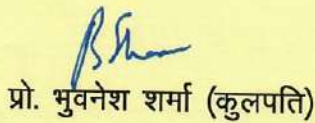 प्रो. भुवनेश शर्मा (कुलपति)